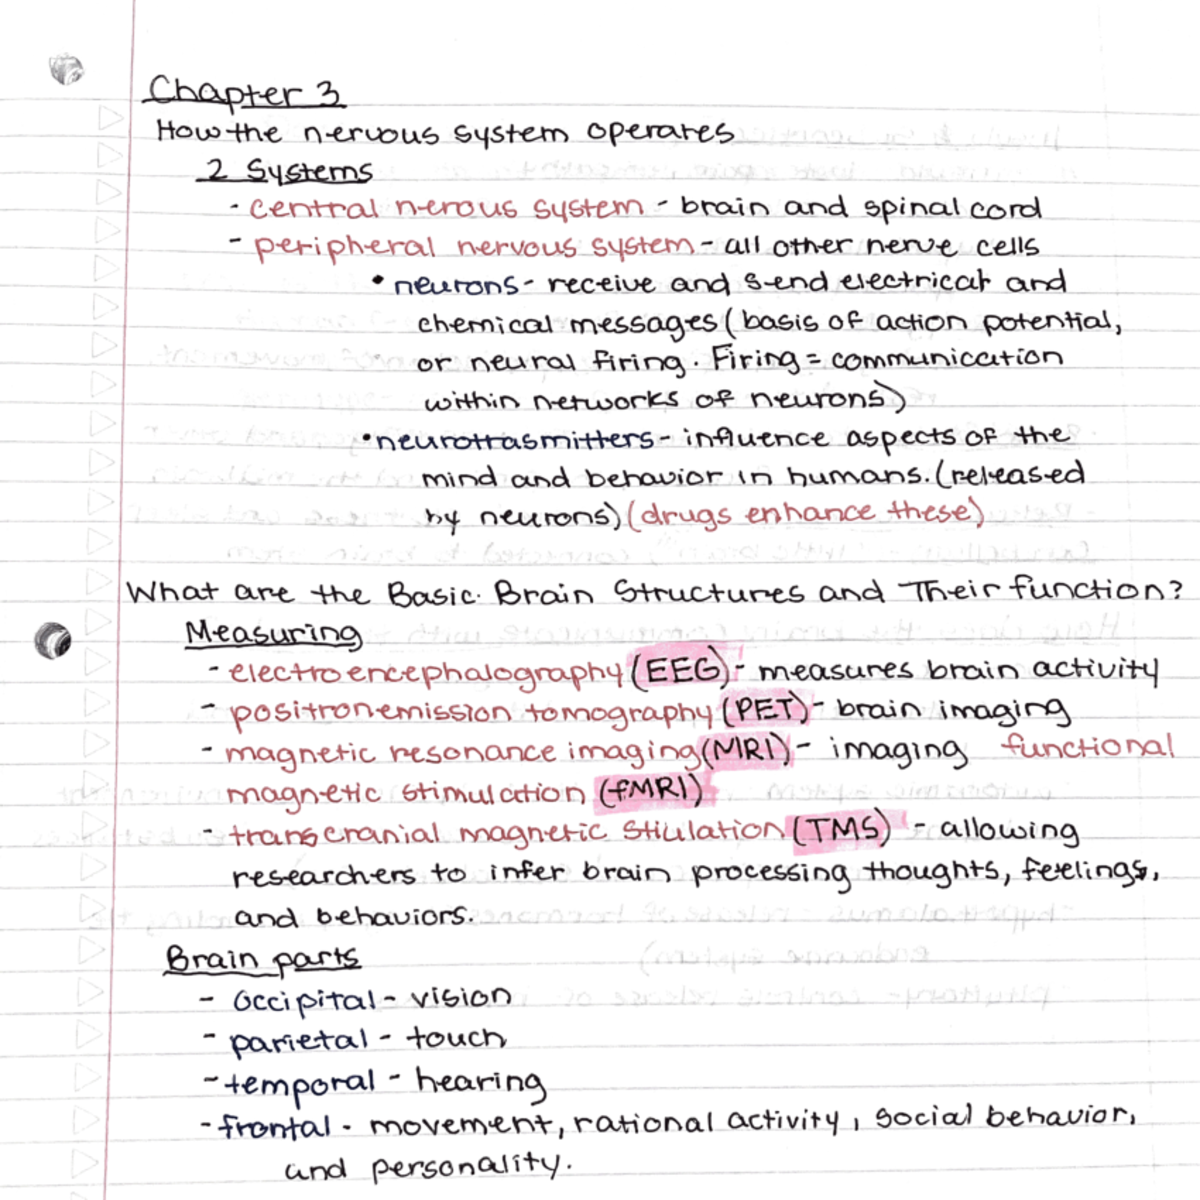 Chapter 3
How the nervous system operates
2 Systems
- central nerous system - brain and spinal cord
- peripheral nervous system - all other nerve cells
• neurons - receive and send electrical and
chemical messages (basis of action potential,
or neural firing. Firing = communication
within networks of neurons)
• neurotrasmitters - influence aspects of the
mind and behavior in humans. (released
by neurons) (drugs enhance these)
What are the Basic Brain Structures and Their function?
Measuring
- electroencephalography (EEG) - measures brain activity
- positron emission tomography (PET) - brain imaging
- magnetic resonance imaging (MRI) - imaging functional
magnetic stimulation (fMRI)
- transcranial magnetic stiulation (TMS) - allowing
researchers to infer brain processing thoughts, feelings,
and behaviors.
Brain parts
- occipital - vision
- parietal - touch
- temporal - hearing
- frontal - movement, rational activity, social behavior,
and personality.